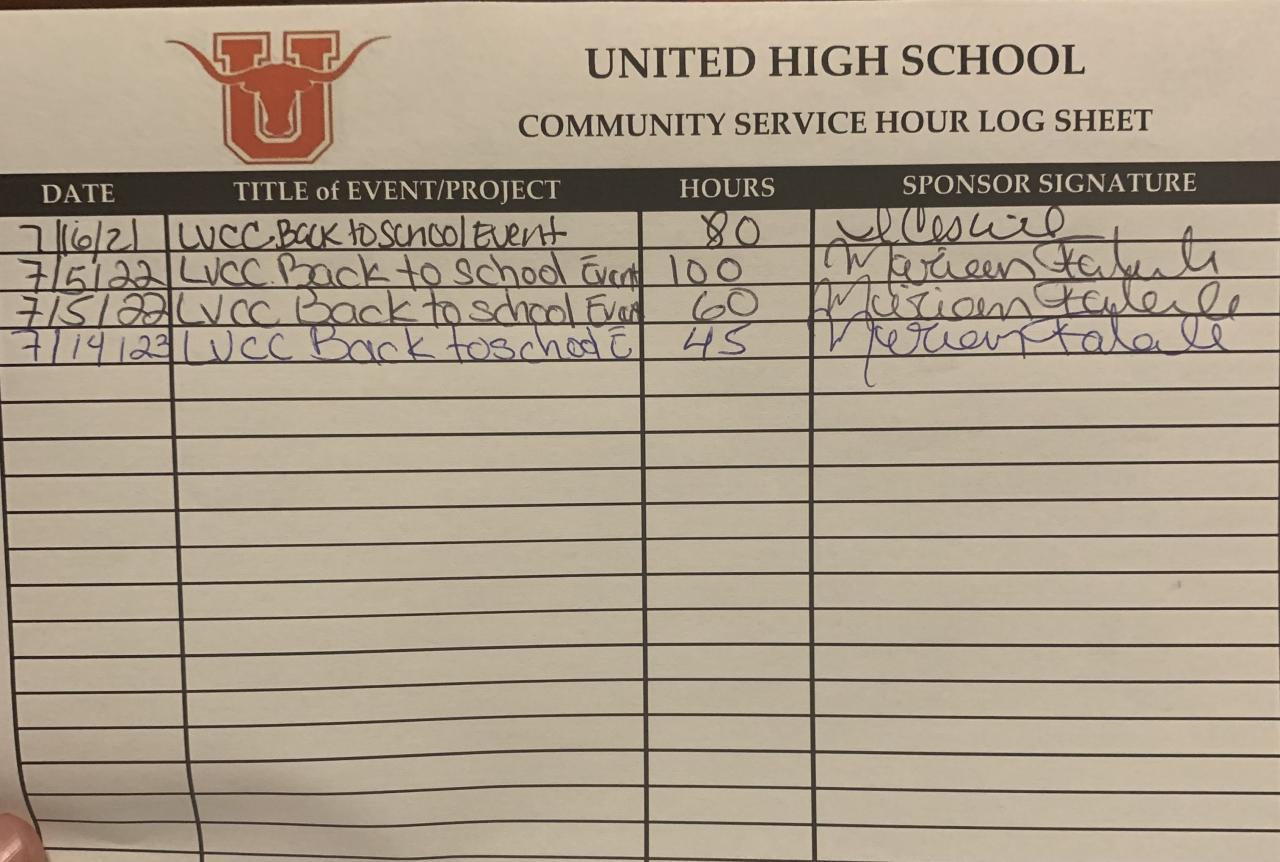 U
UNITED HIGH SCHOOL
COMMUNITY SERVICE HOUR LOG SHEET
DATE TITLE of EVENT/PROJECT HOURS SPONSOR SIGNATURE
7/16/21 LVCC Back to School Event 80
7/5/22 LVCC Back to school Event 100
7/5/22 LVCC Back to school Even 60
7/14/23 LVCC Back to school E 45